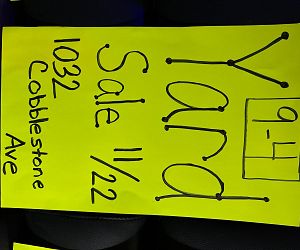 Yard
9-4
Sale 11/22
1032
Cobblestone
Ave